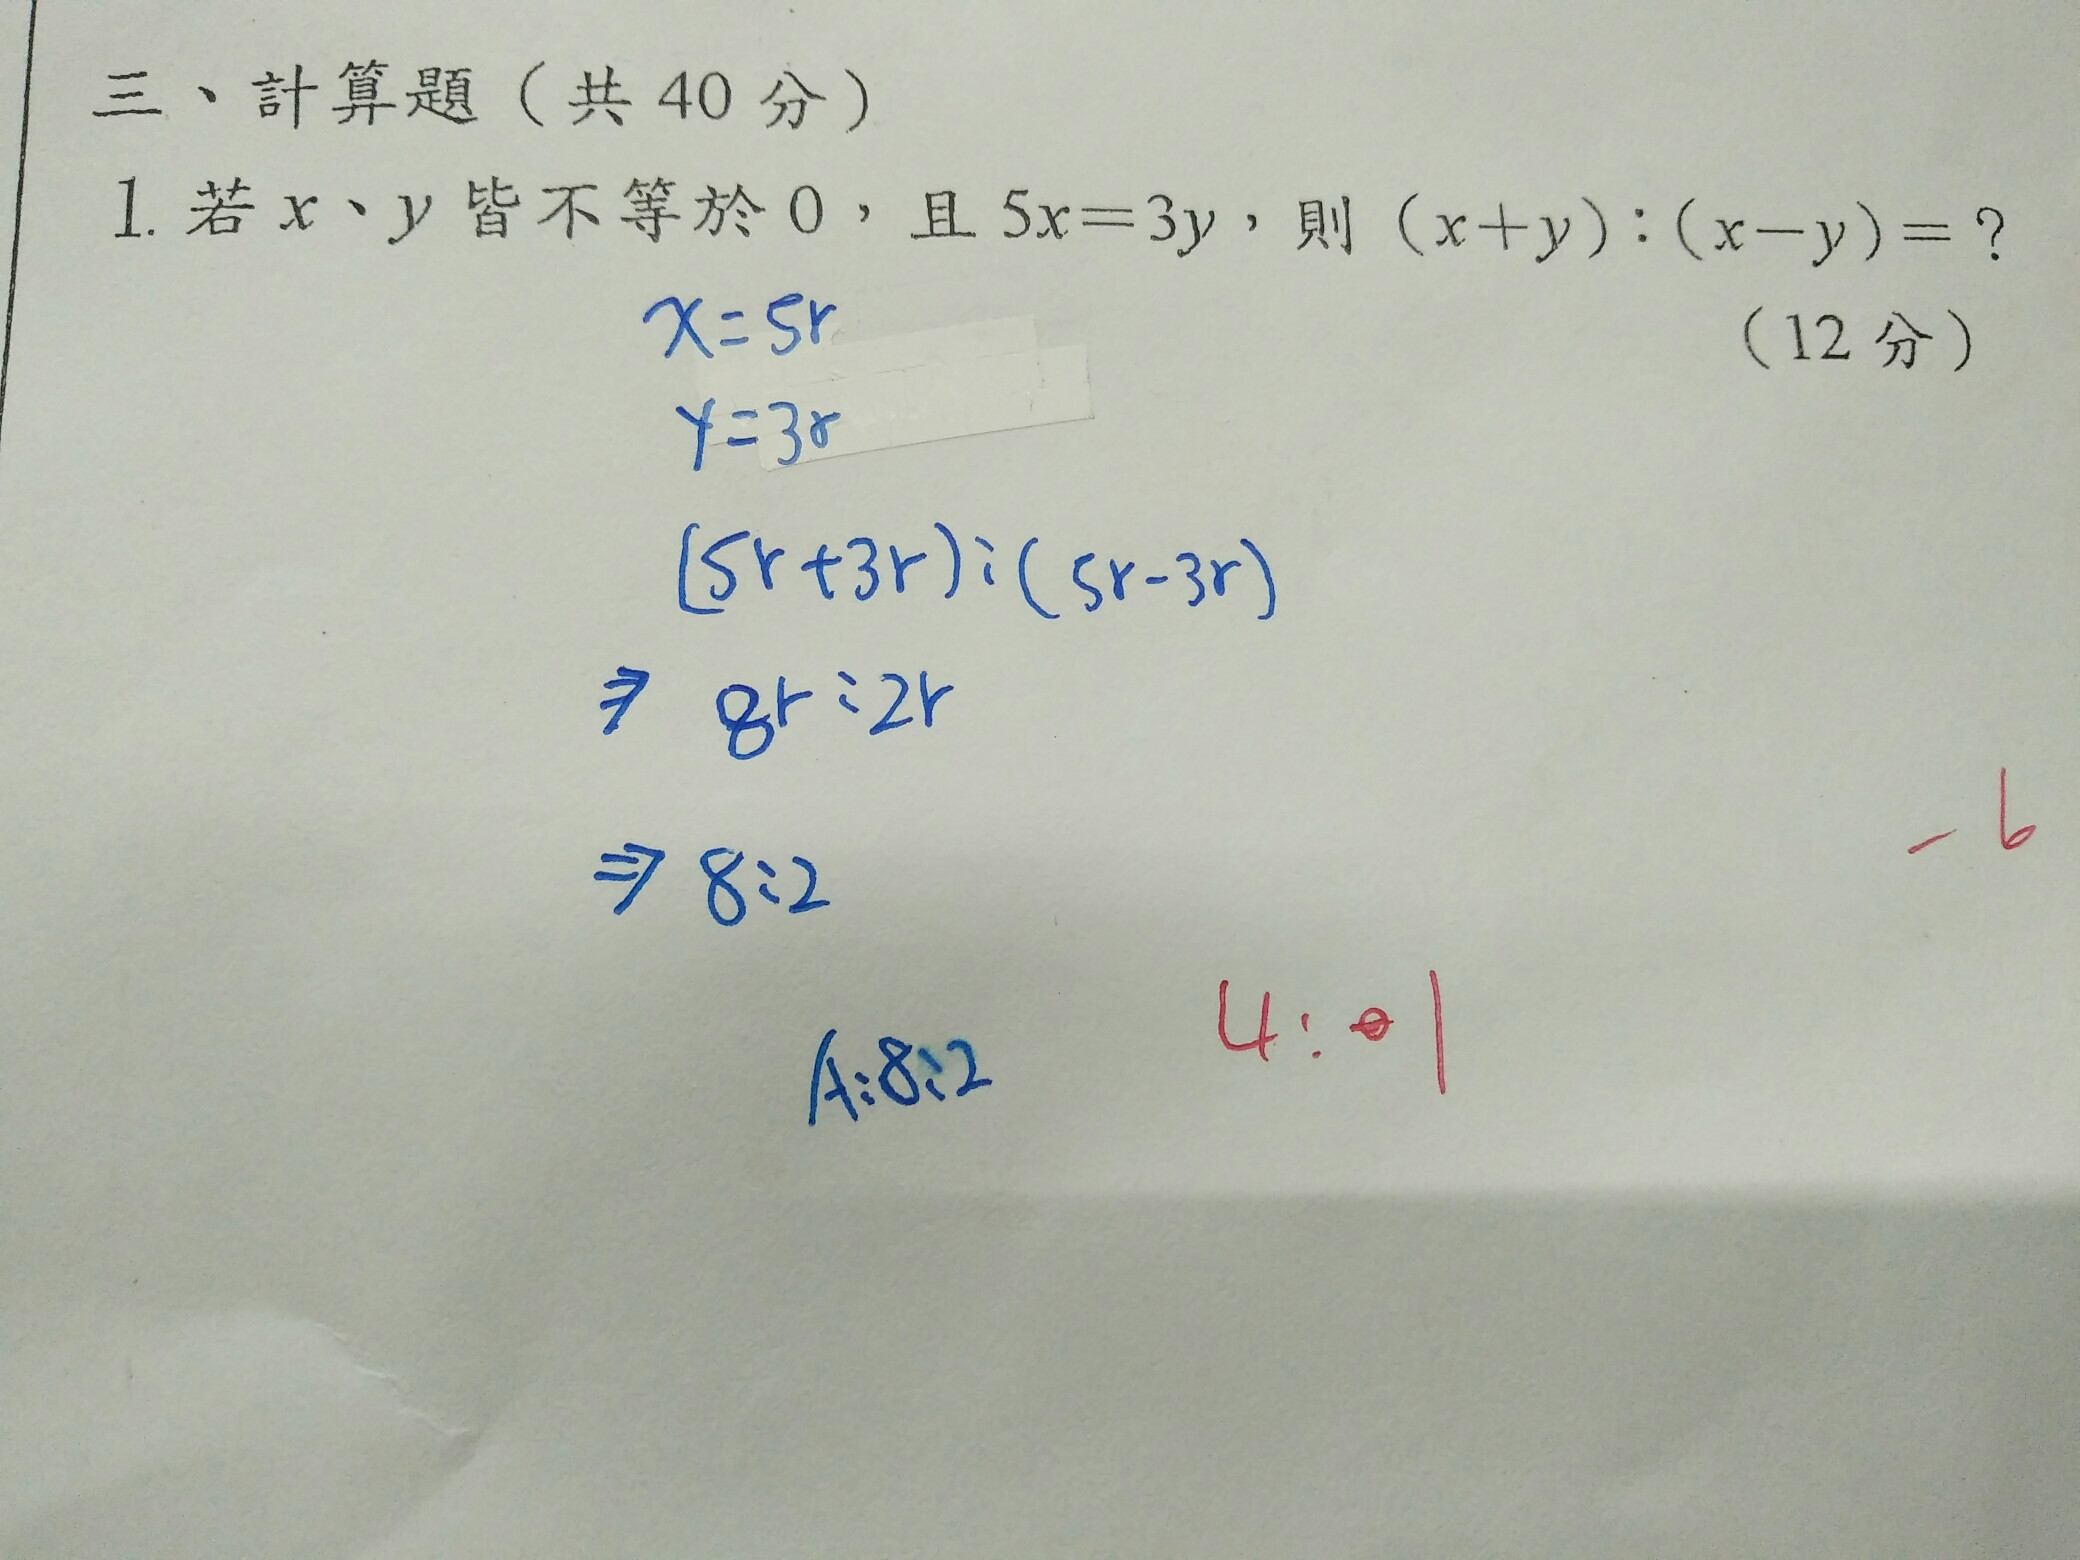 三、計算題（共 40 分）
1. 若 x、y 皆不等於 0，且 5x=3y，則（x+y）:（x-y）=?
（12 分）
x=5r
y=3r
(5r+3r):(5r-3r)
⇒ 8r:2r
⇒ 8:2
-6
A:8:2
4: 1